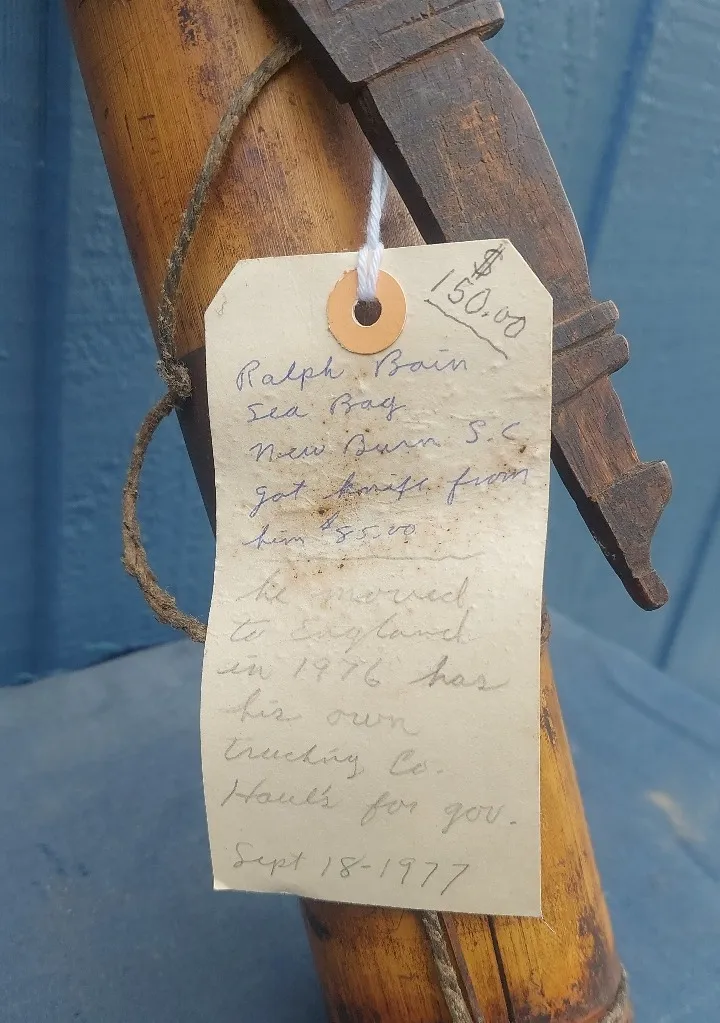 $
150.00
Ralph Bain
Sea Bag
New Burn S.C.
got knife from
him $85.00
he moved
to England
in 1976 has
his own
trucking Co.
Haul's for gov.
Sept 18-1977